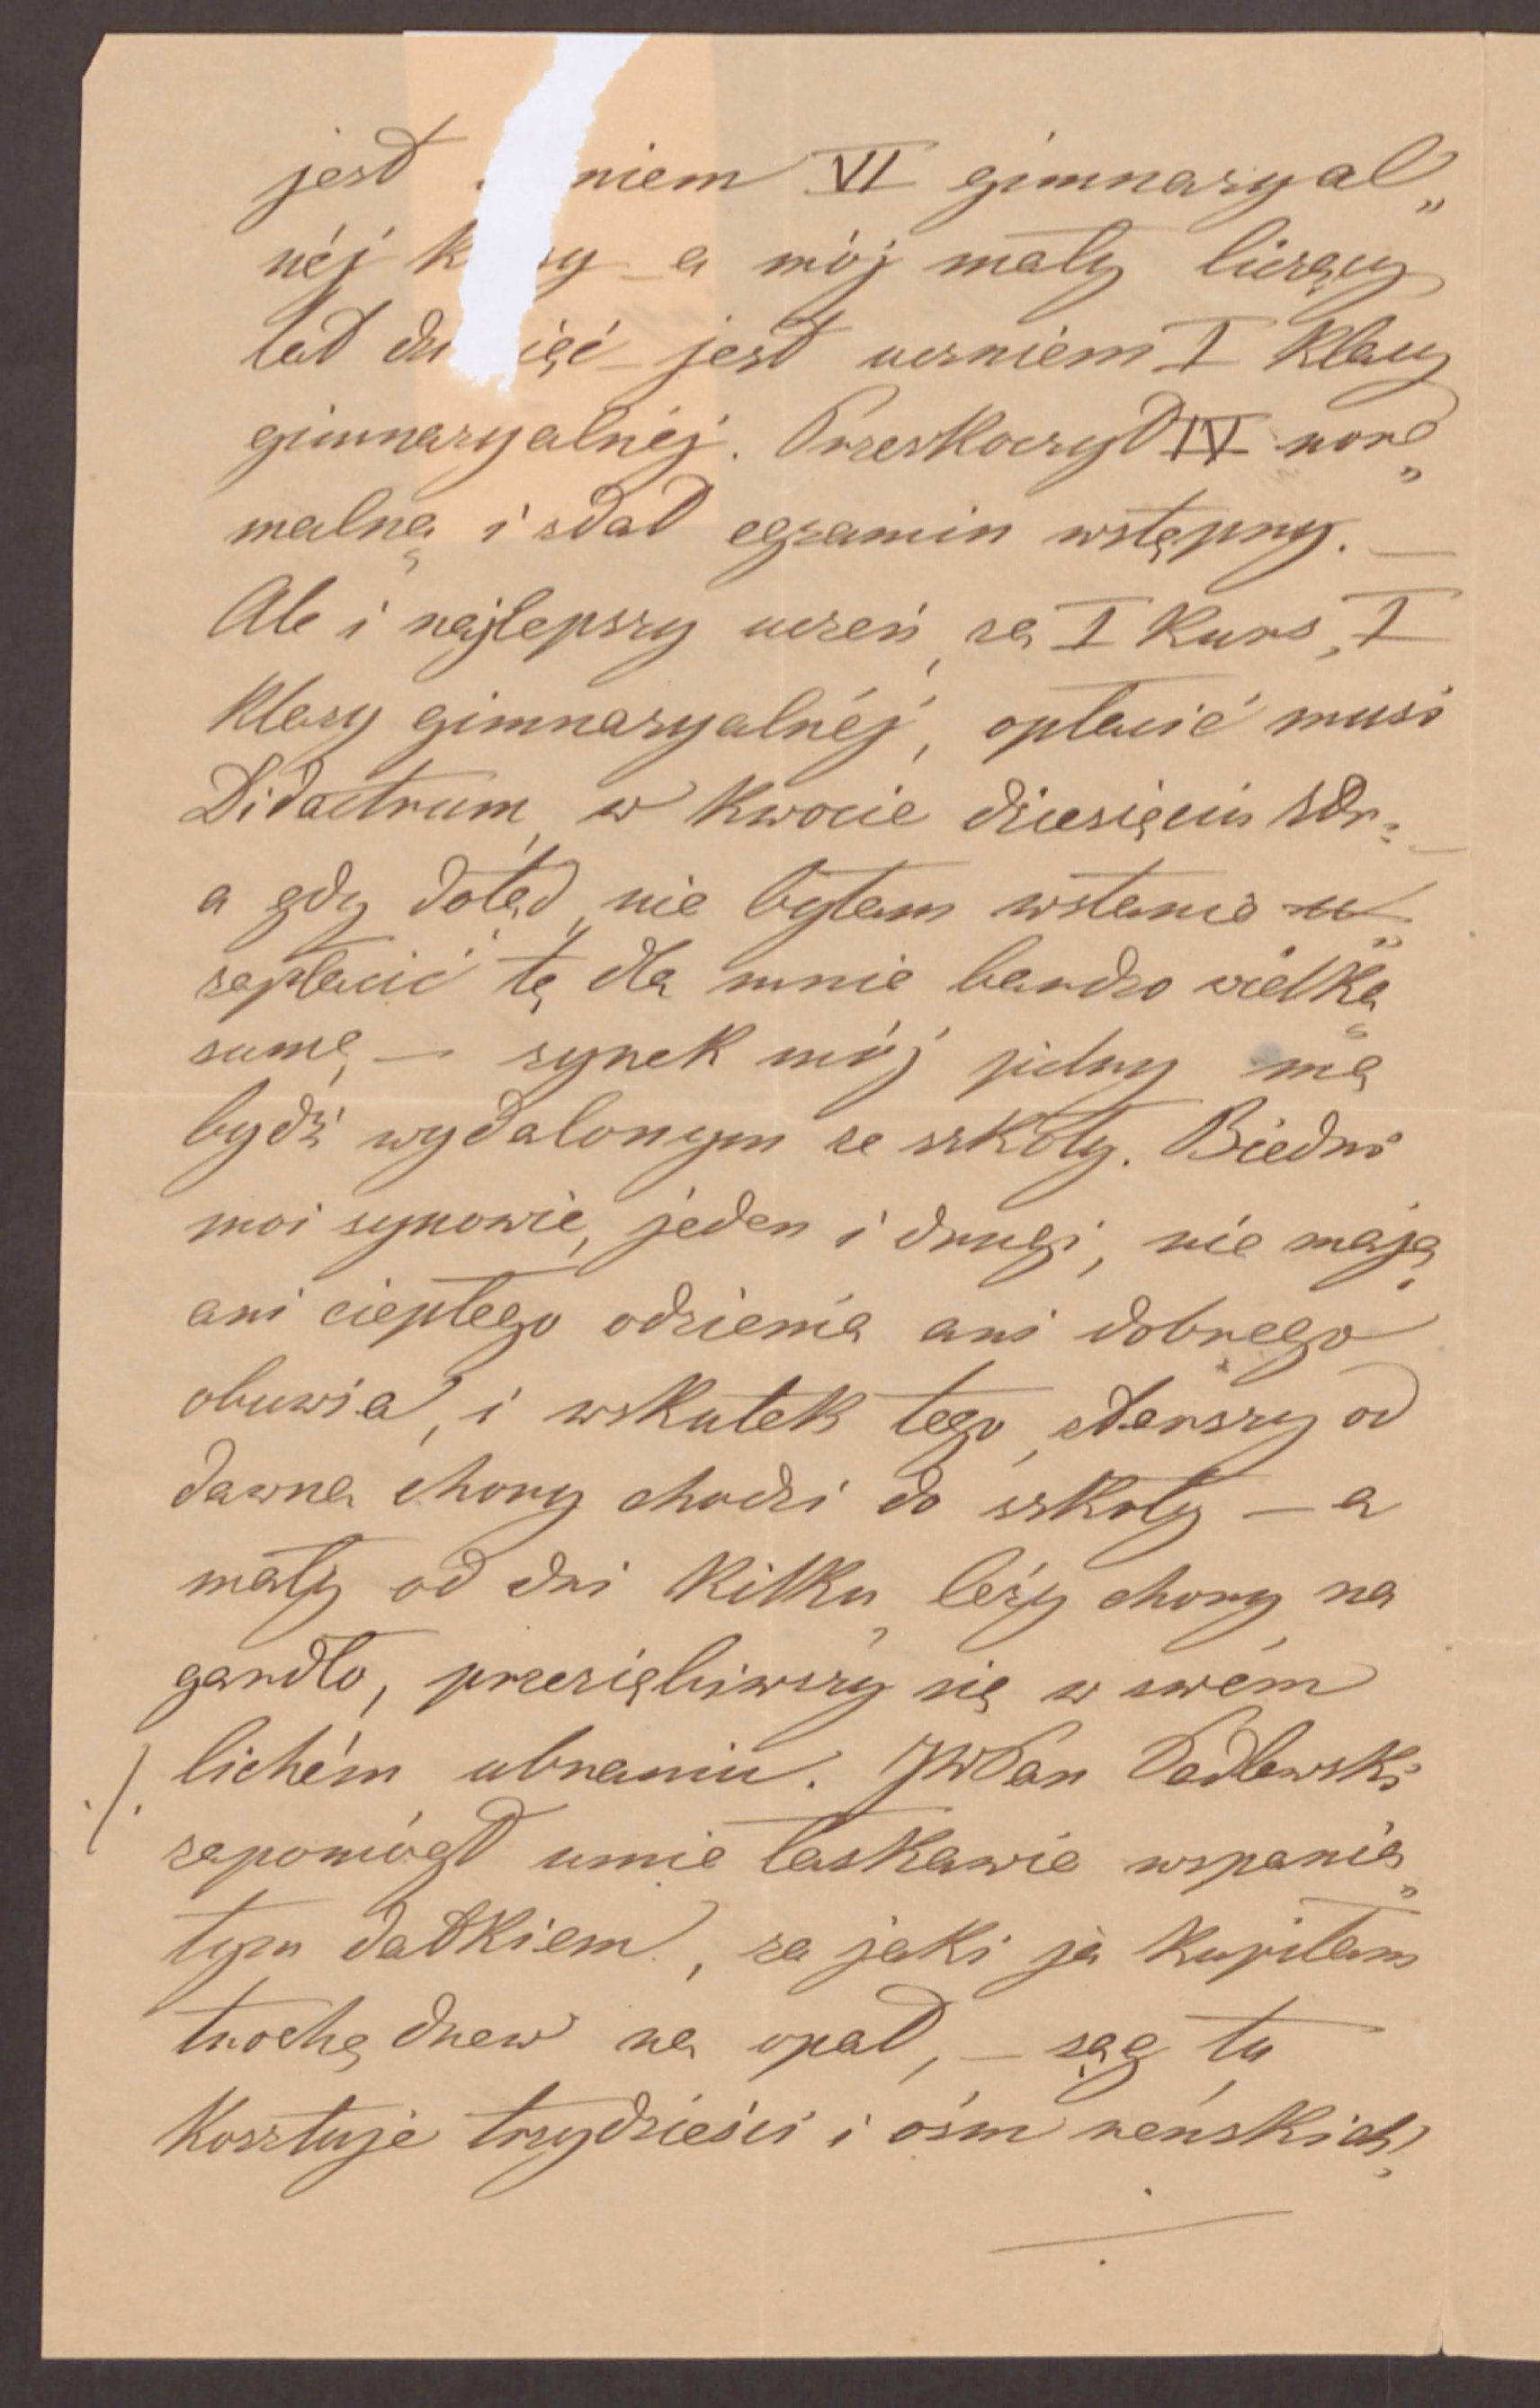 jest niem VI gimnazyal„
néj k zy – a mój mały liczący
lat dz ięć – jest uczniem I Klasy
gimnazyalnéj. Przeskoczył IV nor„
malną i zdał egzamin wstępny. –
Ale i najlepszy uczeń, za I Kurs, I
Klasy gimnazyalnéj, opłacić musi
Didactrum, w Kwocie dziesięciu złr. –
a gdy dotąd, nie byłam wstanie u„
zapłacić tę dla mnie bardzo wielką
sumę, – synek mój pilny ma
bydź wydalonym ze szkoły. Biedni
moi synowie, jeden i drugi, nie mają
ani ciepłego odzienia ani dobrego
obuwia, i wskutek tego, starszy od
dawna chory chodzi do szkoły – a
mały od dni Kilku, leży chory na
gardło, przeziębiwszy się w swém
lichém ubraniu. JWPan Padlewski
·/· zapomógł mnie łaskawie wspania„
łym datkiem, za jaki ja Kupiłam
trochę drew na opał, – sąg tu
Kosztuje trzydzieści i ośm reńskich,